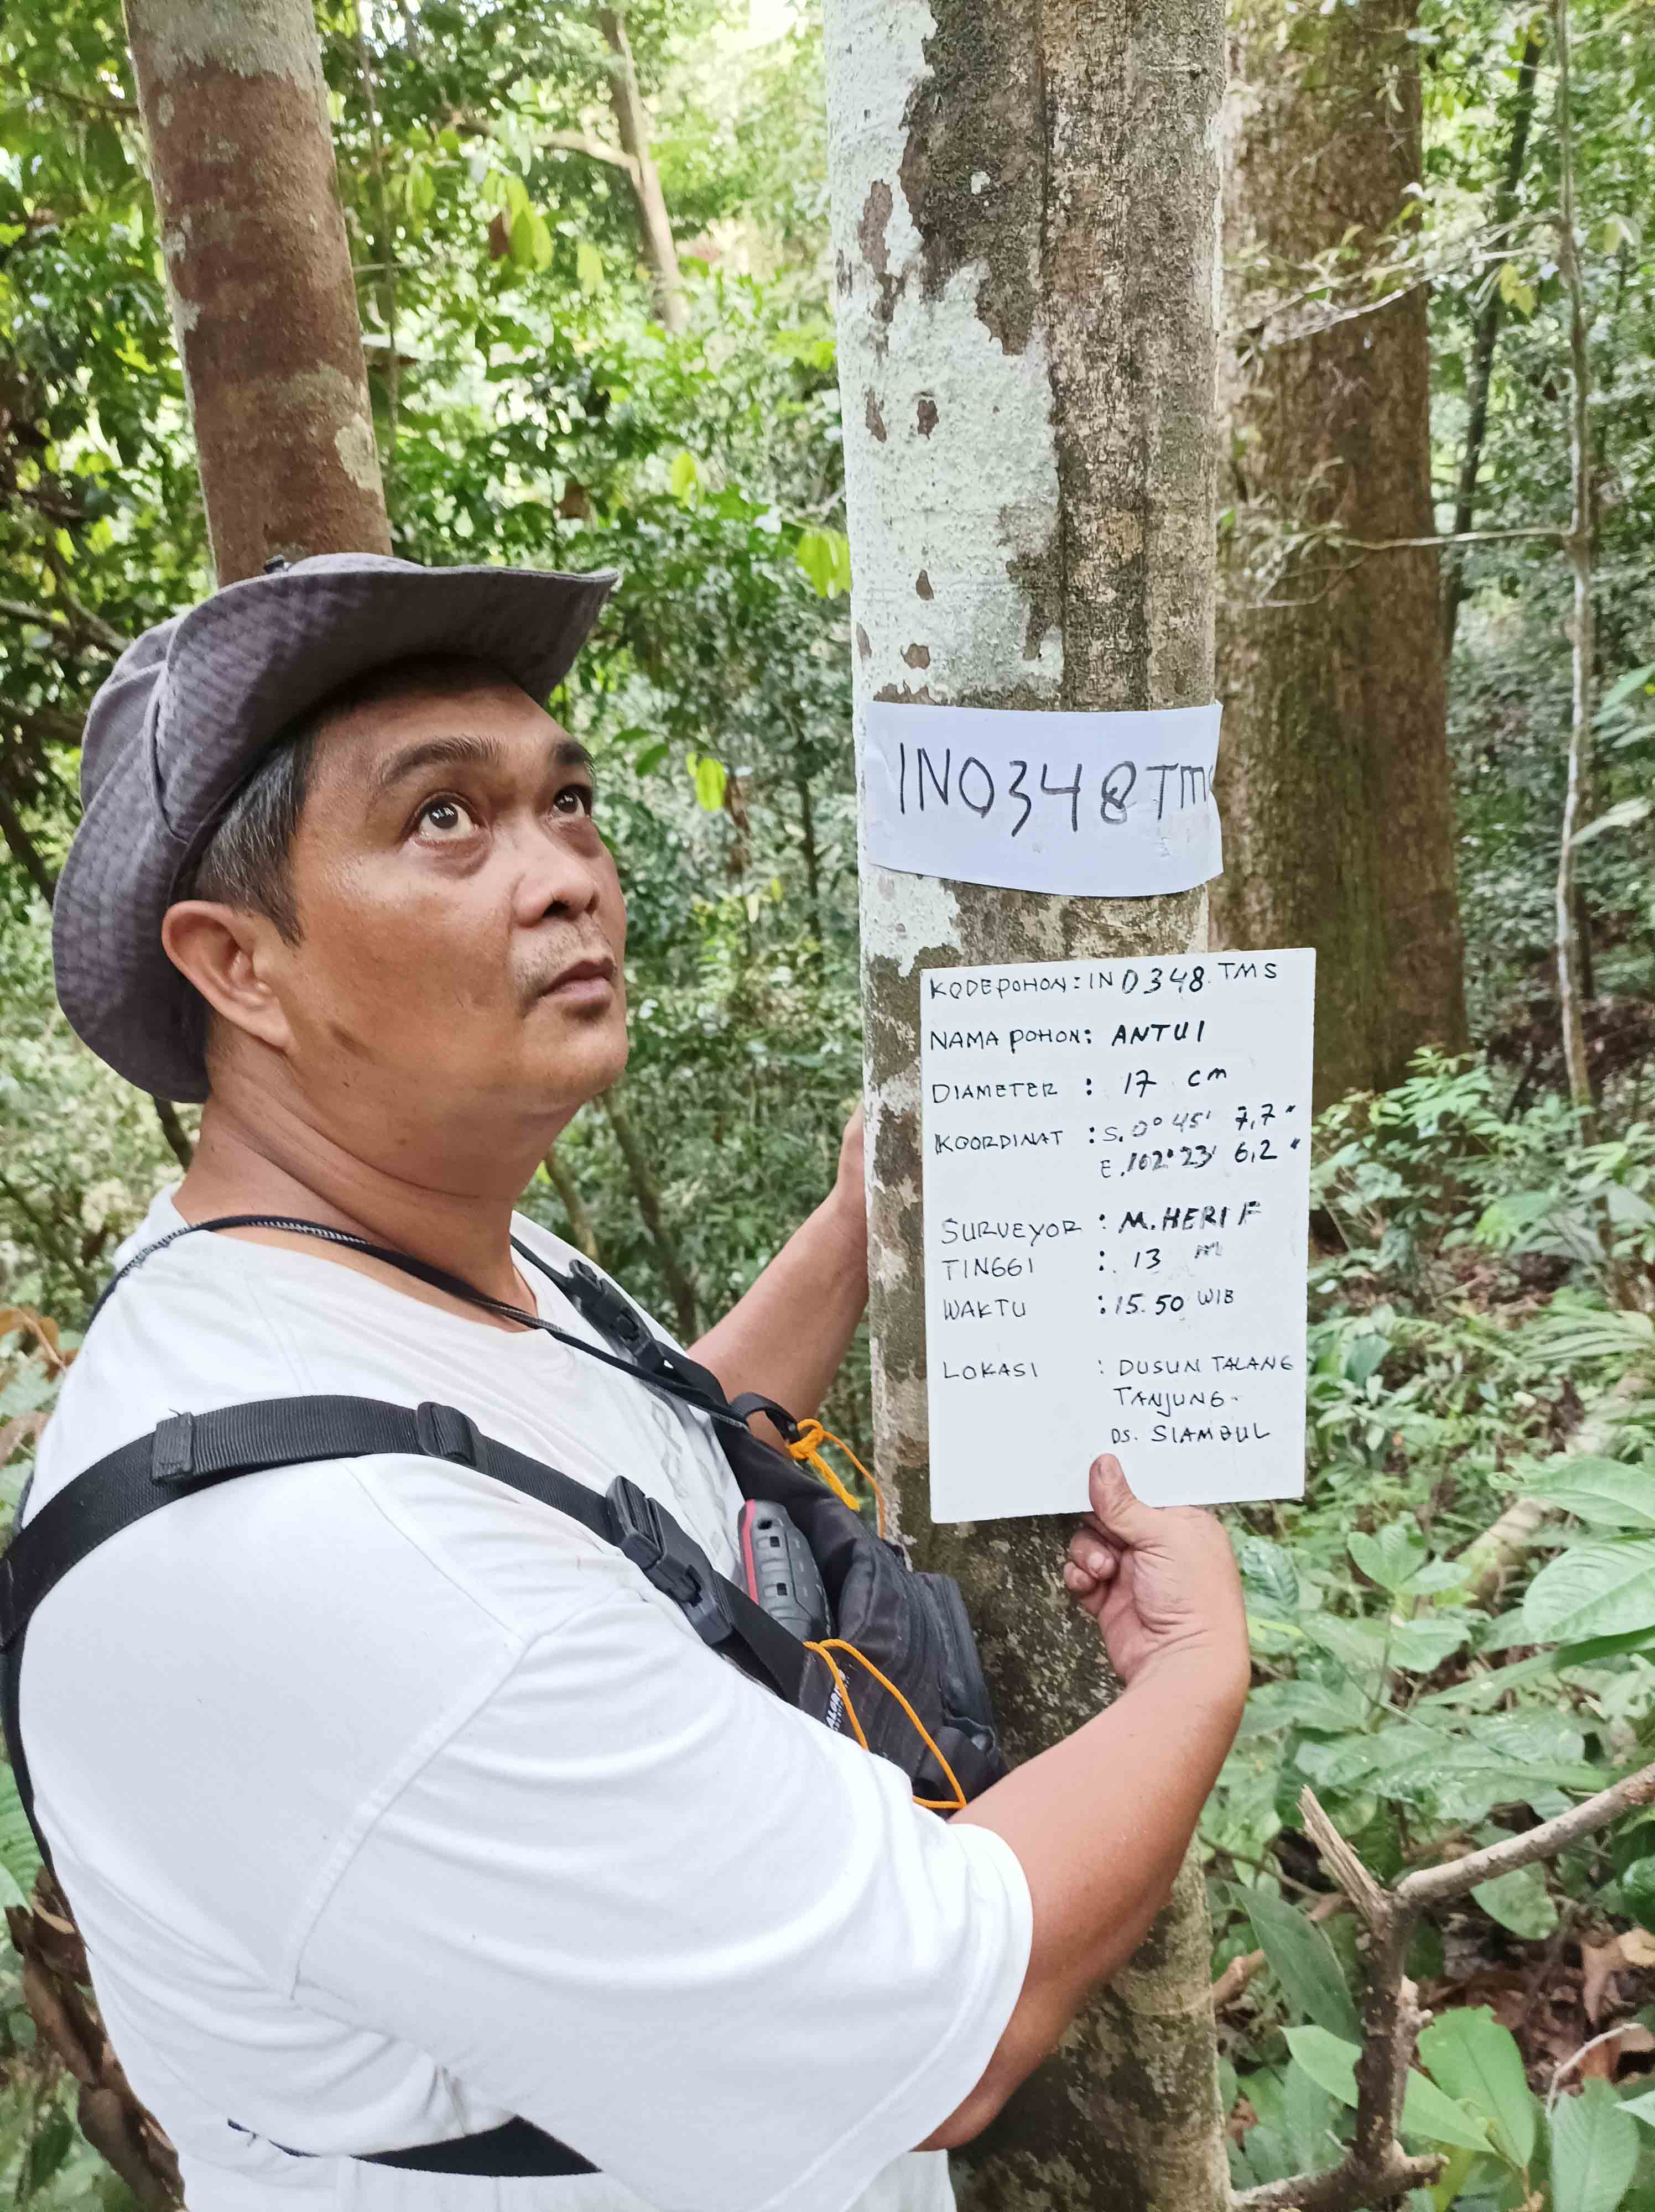 INO348TMS
KODEPOHON: INO348 TMS
NAMA POHON: ANTUI
DIAMETER : 17 cm
KOORDINAT : S. 0° 45' 7,7"
E. 102° 23' 6,2"
SURVEYOR : M. HERI F
TINGGI : 13 m
WAKTU : 15.50 WIB
LOKASI : DUSUN TALANG
TANJUNG-
DS. SIAMBUL